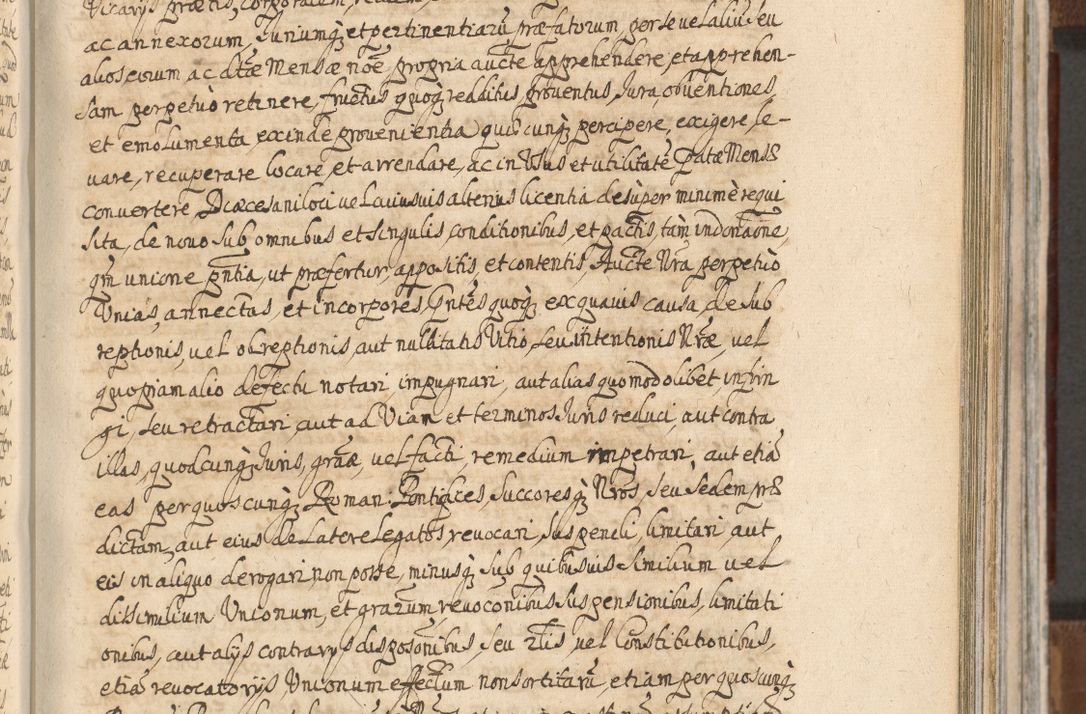 Vicarijs prætis, corporalem,
ac annexorum, Juriumq3 et pertinentiarũ præfatorum, per se vel aliũ seu
alios, eorum ac dtæ Mensæ nõe, propria aucte apprehendere, et apprehen-
sam perpetuò retinere, fructus quoq3 redditus, proventus, Jura, obventiones,
et emolumenta exinde provenientia quæcunq3 percipere, exigere, le-
uare, recuperare locare, et arrendare, ac in Usus et utilitatẽ Mensæ
convertere, Diæcesani loci vel cuiusuis alterius licentia desuper minimè requi
sita, de nouo sub omnibus et singulis, conditionibus, et pactis, tàm in donaõne,
qm unione pntia, ut præfertur, appositis et contentis, Aucte Nra perpetuò
Unias, annectas, et incorpores, Pntes quoq3 ex quauis causa, de sub
reptionis, vel obreptionis, aut nullitatis Vitio, seu intentionis Nræ, vel
quopiam alio defectu notari, impugnari, aut alias quomodolibet infrin
gi, seu retractari, aut ad Viam et terminos Juris reduci, aut contra
illas, quodcunq3 Juris, græ, vel facti, remedium impetrari, aut etiã
eas per quoscunq3 Roman: Pontifices, Succores q3 Nros, seu Sedem præ
dictam, aut eius de Latere Legatos, revocari, suspendi, limitari, aut
eis in aliquo derogari, non posse, minusq3 sub quibusuis similium vel
dissimilium Unionum, et grarum, revoconibus suspensionibus, limitati
onibus, aut alijs contrarijs disposonibus, seu vel Constitutionibus,
etiã revocatorijs, Unionum effectum non sortitarũ, etiam per quoscunq3